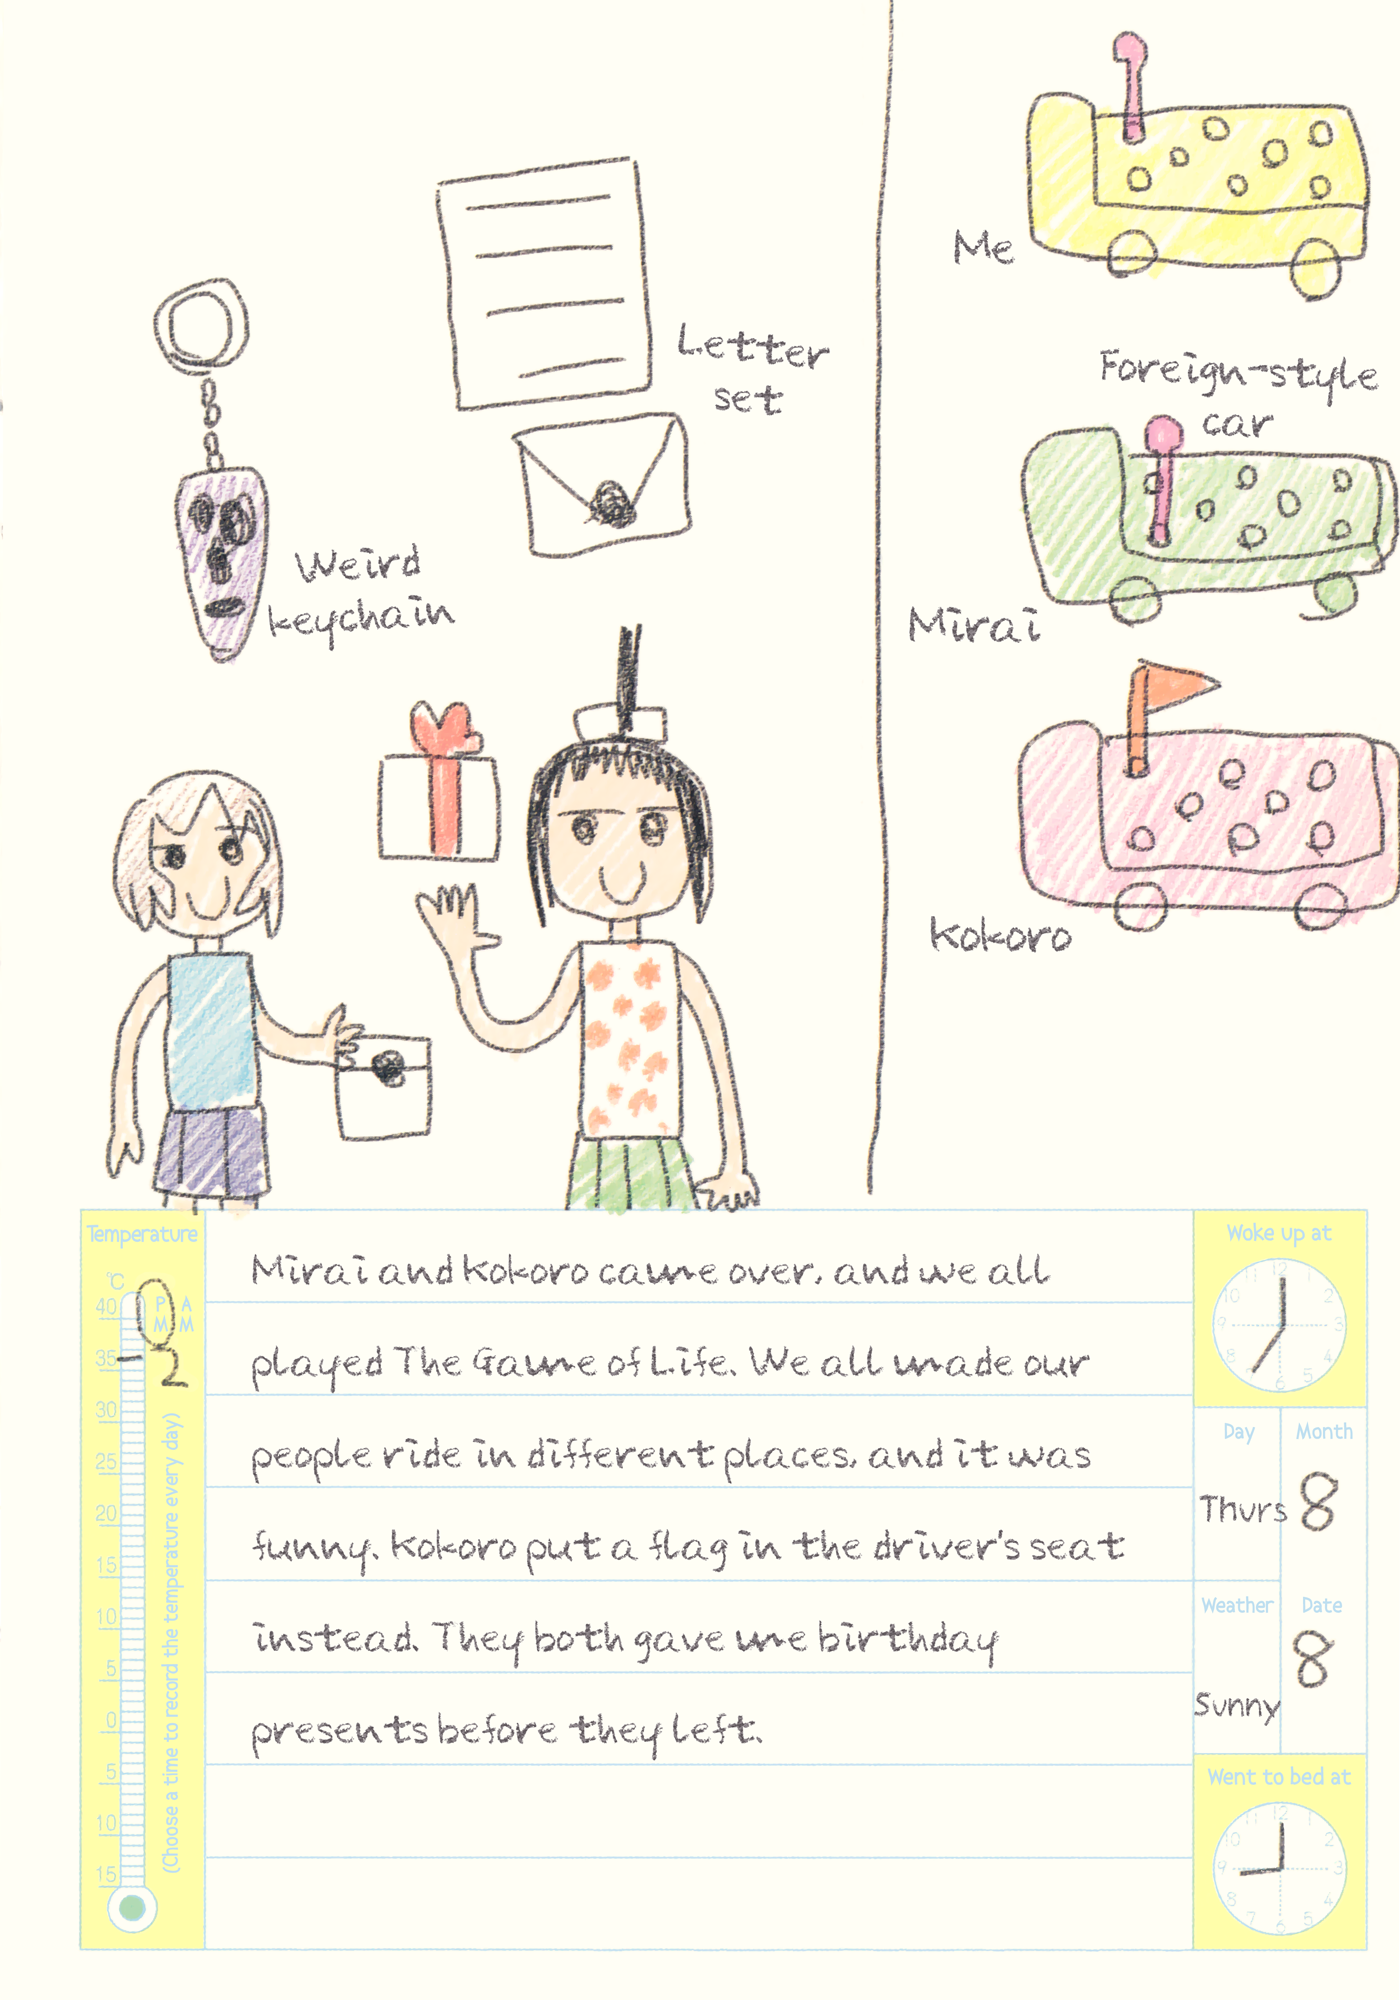 Letter
set
Weird
keychain
Me
Foreign-style
car
Mirai
Kokoro
Temperature
℃
P A
M M
40
35
30
25
20
15
10
5
0
5
10
15
2
(Choose a time to record the temperature every day)
Mirai and Kokoro came over, and we all
played The Game of Life. We all made our
people ride in different places, and it was
funny. Kokoro put a flag in the driver's seat
instead. They both gave me birthday
presents before they left.
Woke up at
11 12 1
10 2
9 3
8 4
7 6 5
Day
Thurs
Month
8
Weather
Sunny
Date
8
Went to bed at
11 12 1
10 2
9 3
8 4
7 6 5